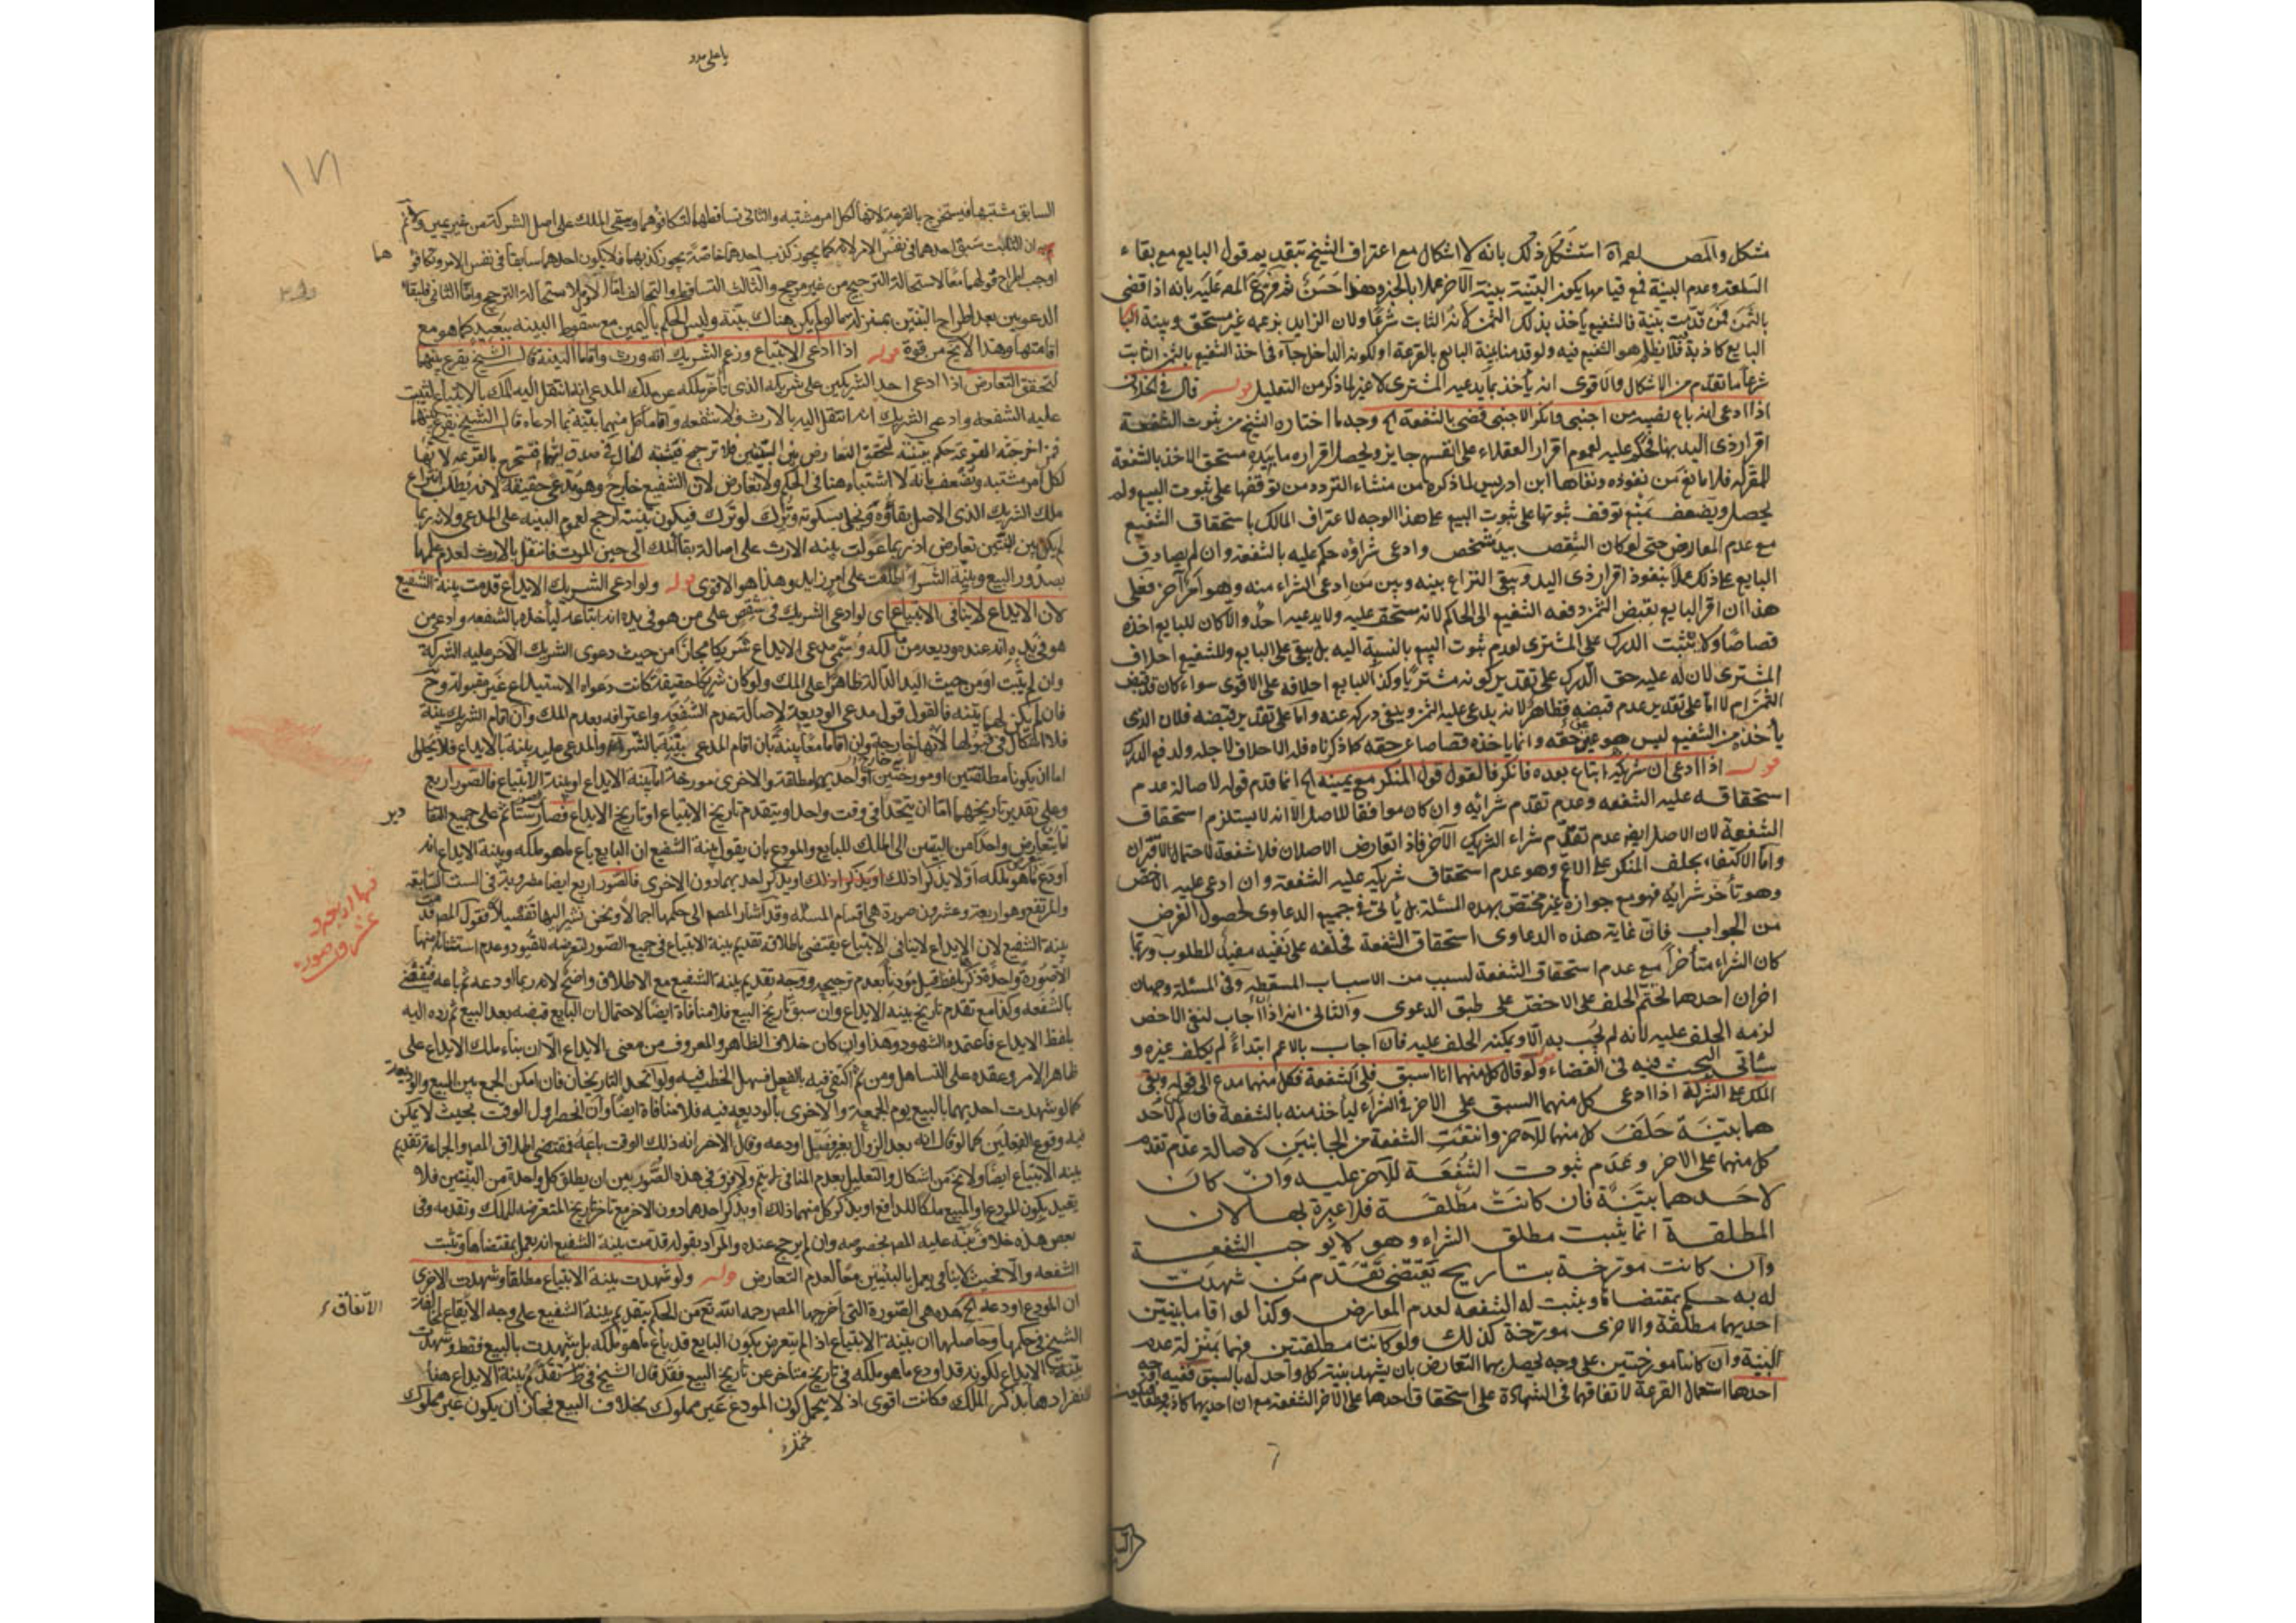 مشكل والمص لعمراه استشكل ذلك بانه لا اشكال مع اعتراف الشيخ بتقديم قول البايع مع بقاء
السلعة وعدم البينة فمع قيامهما يكون البينة بينة الآخر عملا بالخبر وهذا حسن ثم فرع المص عليه بانه اذا قضى
بالثمن لمن قدمت بينة فالشفيع يأخذ بذلك الثمن لانه الثابت شرعا ولان الزايد بزعمه غير مستحق وبينة
البايع كاذبة فلا يظلم هو الشفيع فيه ولو قدمنا بينة البايع بالقرعة او لكونه الداخل جاء في اخذ الشفيع بالثمن الثابت
شرعا ما تقدم من الاشكال والاقوى انه يأخذ بما يدعيه المشترى لا غير لما ذكر من التعليل قوله قال في الخلاف
اذا ادعى انه باع نصيبه من اجنبى وانكر الاجنبى قضى بالشفعة الخ وجه ما اختاره الشيخ من ثبوت الشفعة
اقرار ذى اليد بها فحكم عليه لعموم اقرار العقلاء على انفسهم جايز ويحصل اقراره ما بيده مستحق الاخذ بالشفعة
للمقر له فلا مانع من نفوذه ونفاها ابن ادريس لما ذكره من منشاء التردد من توقفها على ثبوت البيع ولم
يحصل ويضعف بمنع توقف ثبوتها على ثبوت البيع على هذا الوجه لاعتراف المالك باستحقاق الشفيع
مع عدم المعارض حتى لو كان الشقص بيد شخص وادعى شراؤه حكم عليه بالشفعة وان لم يصادق
البايع على ذلك عملا بنفوذ اقرار ذى اليد ويبقى النزاع بينه وبين من ادعى الشراء منه وهو امر آخر فعلى
هذا ان اقر البايع بقبض الثمن دفعه الشفيع الى الحاكم لانه مستحق عليه ولا يدعيه احد والا كان للبايع اخذه
قصاصا ولا يثبت الدرك على المشترى لعدم ثبوت البيع بالنسبة اليه بل يبقى على البايع وللشفيع احلاف
المشترى لان له عليه حق الدرك على تقدير كونه مشتريا وكذا للبايع احلافه على الاقوى سواء كان قد قبض
الثمن ام لا اما على تقدير عدم قبضه فظاهر لانه يدعى عليه الثمن وينفى دركه عنه واما على تقدير قبضه فلان الذى
يأخذه من الشفيع ليس هو عين حقه وانما ياخذه قصاصا عن حقه كما ذكرناه فله الاحلاف لاجله ولدفع الدرك
قوله اذا ادعى ان شريكه ابتاع بعده فانكر فالقول قول المنكر مع يمينه الخ انما قدم قوله لاصالة عدم
استحقاقه عليه الشفعة وعدم تقدم شرائه وان كان موافقا للاصل الا انه لا يستلزم استحقاق
الشفعة لان الاصل ايضا عدم تقدم شراء الشريك الآخر فاذا تعارض الاصلان فلا شفعة لاحتمال الاقتران
واما الاكتفاء بحلف المنكر على الاعم وهو عدم استحقاق شريكه عليه الشفعة وان ادعى عليه الاخص
وهو تأخر شرائه فهو مع جوازه غير مختص بهذه المسئلة بل يأتى في جميع الدعاوى لحصول الغرض
من الجواب فان غاية هذه الدعاوى استحقاق الشفعة فحلفه على نفيه مفيد للمطلوب وربما
كان الشراء متأخرا مع عدم استحقاق الشفعة لسبب من الاسباب المسقطة وفى المسئلة وجهان
اخران احدهما تحتم الحلف على الاخص على طبق الدعوى والثانى انه اذا اجاب لنفى الاخص
لزمه الحلف عليه لانه لم يجب به الا ويمكنه الحلف عليه فان اجاب بالاعم ابتداء لم يكلف غيره و
سيأتى البحث فيه فى القضاء قوله ولو قال كل منهما انا اسبق فلى الشفعة فكل منهما مدع الى قوله وبقى
الملك على الشركة اذا ادعى كل منهما السبق على الاخر في الشراء ليأخذ منه بالشفعة فان لم يكن لاحد
هما بينة حلف كل منهما للاخر وانتفت الشفعة من الجانبين لاصالة عدم تقدم
كل منهما على الاخر وعدم ثبوت الشفعة للاخر عليه وان كان
لاحدهما بينة فان كانت مطلقة فلا عبرة بها لان
المطلقة انما يثبت مطلق الشراء وهو لا يوجب الشفعة
وان كانت مورخة بتاريخ يقتضى تقدم من شهدت
له به حكم بمقتضاها ويثبت له الشفعة لعدم المعارض وكذا لو اقاما بينتين
احديهما مطلقة والاخرى مورخة كذلك ولو كانتا مطلقتين فهما بمنزلة عدم
البينة وان كانتا مورختين على وجه يحصل بهما التعارض بان يشهد بينة كل واحد له بالسبق ففيه اوجه
احدها استعمال القرعة لاتفاقهما فى الشهادة على استحقاق احدهما على الآخر الشفعة مع ان احديهما كاذبة
يا على مدد
١٧١
السابق مشتبها فيستخرج بالقرعة لانها لكل امر مشتبه والثانى تساقطهما لتكافؤهما ويبقى الملك على اصل الشركة من غير يمين ولا ثم
ان الثابت سبق احدهما فى نفس الامر لانه كما يجوز كذب احدهما خاصة يجوز كذبهما فلا يكون احدهما سابقا فى نفس الامر وتكافؤ
هما
اوجب اطراح قولهما معا لاستحالة الترجيح من غير مرجح والثالث التساقط والتحالف اما الاول لاستحالة الترجيح واما الثانى فلبقاء
الدعويين بعد اطراح البينتين بمنزلة ما لو لم يكن هناك بينة وليس الحكم باليمين مع سقوط البينة ببعيد كما هو مع
اقامتهما وهذا لا يخ من قوة قوله اذا ادعى الابتياع وزعم الشريك انه ورث واقاما البينة قال الشيخ يقرع بينهما
لتحقق التعارض اذا ادعى احد الشريكين على شريكه الذى تأخر ملكه عن ملك المدعى انه انتقل اليه الملك بالابتياع ليثبت
عليه الشفعة وادعى الشريك انه انتقل اليه بالارث فلا شفعة واقاما كل منهما بينة بما ادعاه قال الشيخ يقرع بينهما
فمن اخرجته القرعة حكم ببينته لتحقق التعارض بين البينتين فلا ترجيح فيشتبه الحال فى صدق ايهما فيستخرج بالقرعة لانها
لكل امر مشتبه ويضعف بأنه لا اشتباه هنا فى الحكم ولا تعارض لان الشفيع خارج وهو مدعى حقيقة لانه يطلب انتزاع
ملك الشريك الذى الاصل بقاؤه ويخلى بسكوته ويترك لو ترك فيكون بينته ارجح لعموم البينة على المدعى ولانه ربما
لم يكن بين البينتين تعارض اذ ربما عولت بينة الارث على اصالة بقاء الملك الى حين الموت فانتقل بالارث لعدم علمها
بصدور البيع وبينة الشراء اطلعت على امر زايد وهذا هو الاقوى قوله ولو ادعى الشريك الايداع قدمت بينة الشفيع
لان الايداع لا ينافى الابتياع اى لو ادعى الشريك فى شقص على من هو فى يده انه ابتاعه ليأخذه بالشفعة وادعى من
هو فى يده انه عنده وديعة من مالكه وسمى مدعى الايداع شريكا مجازا من حيث دعوى الشريك الآخر عليه الشركة
وان لم يثبت او من حيث اليد الدالة ظاهرا على الملك ولو كان شريكا حقيقة كانت دعواه الاستيداع غير مقبولة وح
فان لم يكن لهما بينة فالقول قول مدعى الوديعة لاصالة عدم الشفعة واعترافه بعدم الملك وان اقام الشريك بينة
فلا اشكال فى قبولها لانها خارجة وان اقاما معا بينة بان اقام المدعى بينة بالشراء والمدعى عليه بينة بالايداع فلا يخلو
اما ان يكونا مطلقتين او مورختين او احديهما مطلقة والاخرى مورخة اما بينة الايداع او بينة الابتياع فالصور اربع
وعلى تقدير تاريخهما اما ان يتحدا فى وقت واحد او يتقدم تاريخ الابتياع او تاريخ الايداع فصارت ستا ثم على جميع التقا
دير
اما ان يتعرض واحد من البينتين الى الملك للبايع والمودع بان يقول بينة الشفيع ان البايع باع ما هو ملكه وبينة الايداع انه
اودع ما هو ملكه او لا يذكرا ذلك او يذكر احديهما دون الاخرى فالصور اربع ايضا مضروبة فى الست السابقة
والمرتفع وهو اربعة وعشرون صورة هى اقسام المسئلة وقد اشار المصم الى حكمها اجمالا ونحن نشير اليها تفصيلا فقول المص قدمت
نهااربعه و
عشرون صورة
بينة الشفيع لان الايداع لا ينافى الابتياع يقتضى باطلاقه تقديم بينة الابتياع فى جميع الصور لتعرضه للقيود وعدم استثنائه منها
الا صورة واحدة وذكره بلفظ قيل مؤذنا بعدم ترجيحه ووجه تقديم بينة الشفيع مع الاطلاق واضح لانه ربما اودعه ثم باعه فيقضى
بالشفعة وكذا مع تقدم تاريخ بينة الايداع وان سبق تاريخ البيع فلا منافاة ايضا لاحتمال ان البايع قبضه بعد البيع ثم رده اليه
بلفظ الايداع فاعتمده الشهود وهذا وان كان خلاف الظاهر والمعروف من معنى الايداع الا ان بناء ملك الايداع على
ظاهر الامر وعقده على التساهل ومن ثم اكتفى فيه بالفعل فسهل الخطب فيه ولو اتحد التاريخان فان امكن الجمع بين البيع والوديعة
كما لو شهدت احديهما بالبيع يوم الجمعة والاخرى بالوديعة فيه فلا منافاة ايضا وان انحصر اول الوقت بحيث لا يمكن
فيه وقوع الفعلين كما لو قال انه بعد الزوال بغير فصل اودعه وقال الاخر انه ذلك الوقت باعه فمقتضى اطلاق المص والجماعة تقديم
بينة الابتياع ايضا ولا يخ من اشكال والتعليل بعدم المنافى لم يتم ولا فرق فى هذه الصور بين ان يطلق كل واحدة من البينتين فلا
يقيد بكون المودع او المبيع ملكا للدافع او يذكر كل منهما ذلك او يذكر احدهما دون الاخر مع تأخر تاريخ المتعرضة للملك وتقدمه وفى
بعض هذه خلاف نبه عليه المص بخصوصه وان لم يرجح عنده والمراد بقوله قدمت بينة الشفيع انه يعمل بمقتضاها ويثبت
الشفعة والا فحيث لا ينافى يعمل بالبينتين معا لعدم التعارض قوله ولو شهدت بينة الابتياع مطلقا وشهدت الاخرى
ان المودع اودعه الخ هذه هى الصورة التى اخرجها المص رحمه الله تع من الحكم بتقديم بينة الشفيع على وجه الاتفاق لمخالفة
الاتفاق
الشيخ فى حكمها وحاصلها ان بينة الابتياع اذا لم يتعرض بكون البايع قد باع ما هو ملكه بل شهدت بالبيع فقط وشهدت
بينة الايداع لكونه قد اودع ما هو ملكه فى تاريخ متأخر عن تاريخ البيع فقد قال الشيخ فى ط تقدم بينة الايداع هنا
لانفرادها بذكر الملك فكانت اقوى اذ لا يحمل كون المودع غير مملوك بخلاف البيع فجاز ان يكون غير مملوك